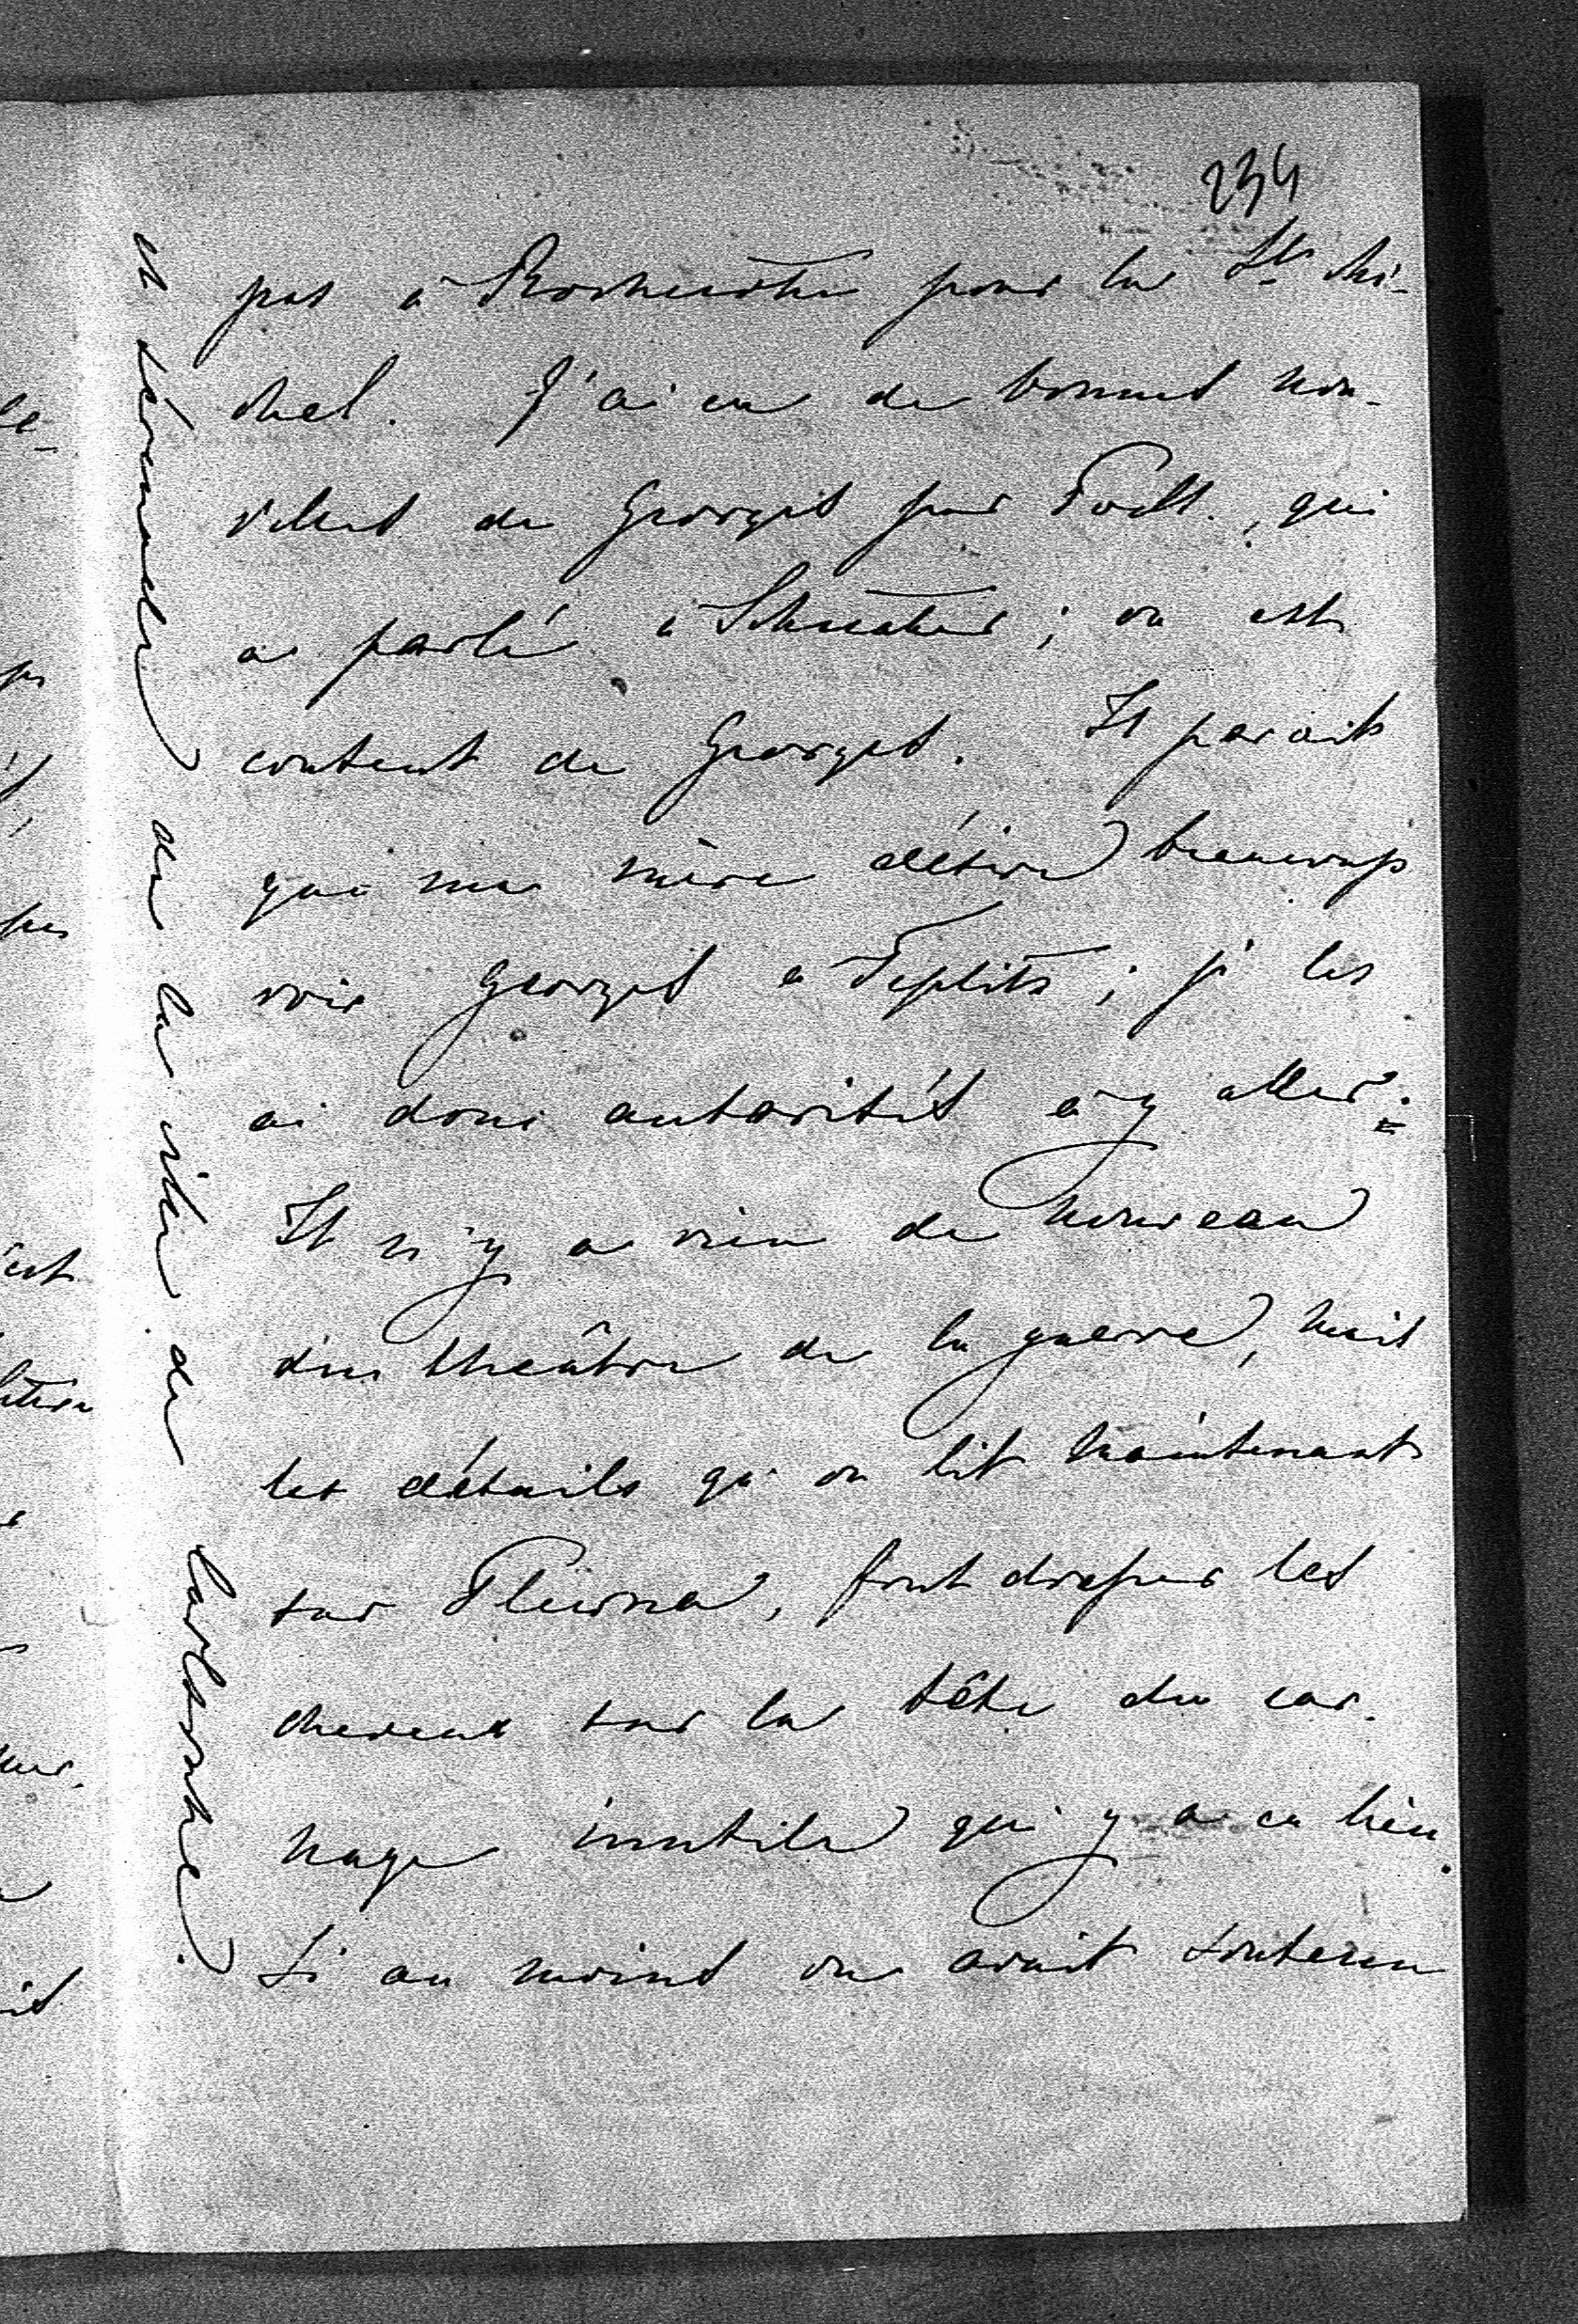 234
pas à pour la St. Mi-
chel. J'ai eu de bonnes nou-
velles de Georges par , qui
a parlé à ; on est
content de Georges. Il parait
que ma mère désire beaucoup
voir Georges a Teplitz ; je les
ai donc autorisés à y aller.
Il n'y a rien de nouveau
du théâtre de la guerre, mais
les détails qu'on lit maintenant
sur Plewna, font dresser les
cheveux sur la tête du car-
nage inutile qui y a eu lieu.
Si au moins on avait soutenu
et de la de